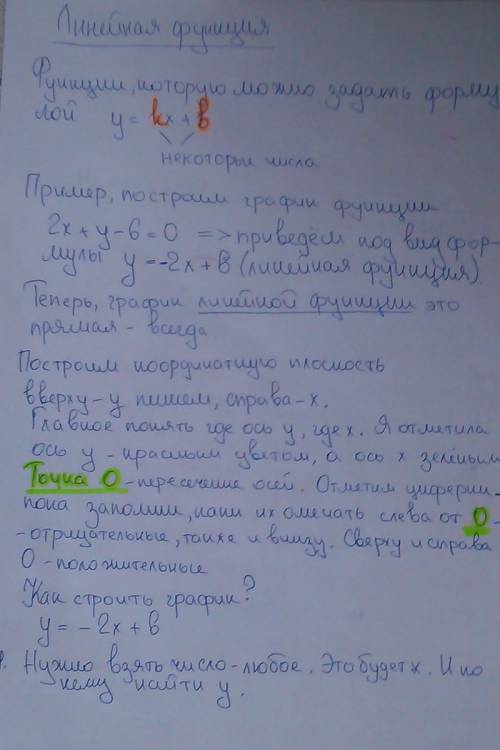 Линейная функция
Функции, которую можно задать форму
лой y = kx + b
некоторые числа
Пример, построим график функции
2x + y - 6 = 0 => приведём под вид фор-
мулы y = -2x + b (линейная функция).
Теперь, график линейной функции это
прямая - всегда
Построим координатную плоскость
вверху - y пишем, справа - x.
Главное понять где ось y, где x. Я отметила
ось y - красным цветом, а ось x зелёным
Точка O - пересечение осей. Отметим циферки.
пока запомни, как их омечать слева от O -
- отрицательные, также и внизу. Сверху и справа
O - положительные
Как строить график?
y = -2x + b
Нужно взять число - любое. Это будет x. И по
нему найти y.